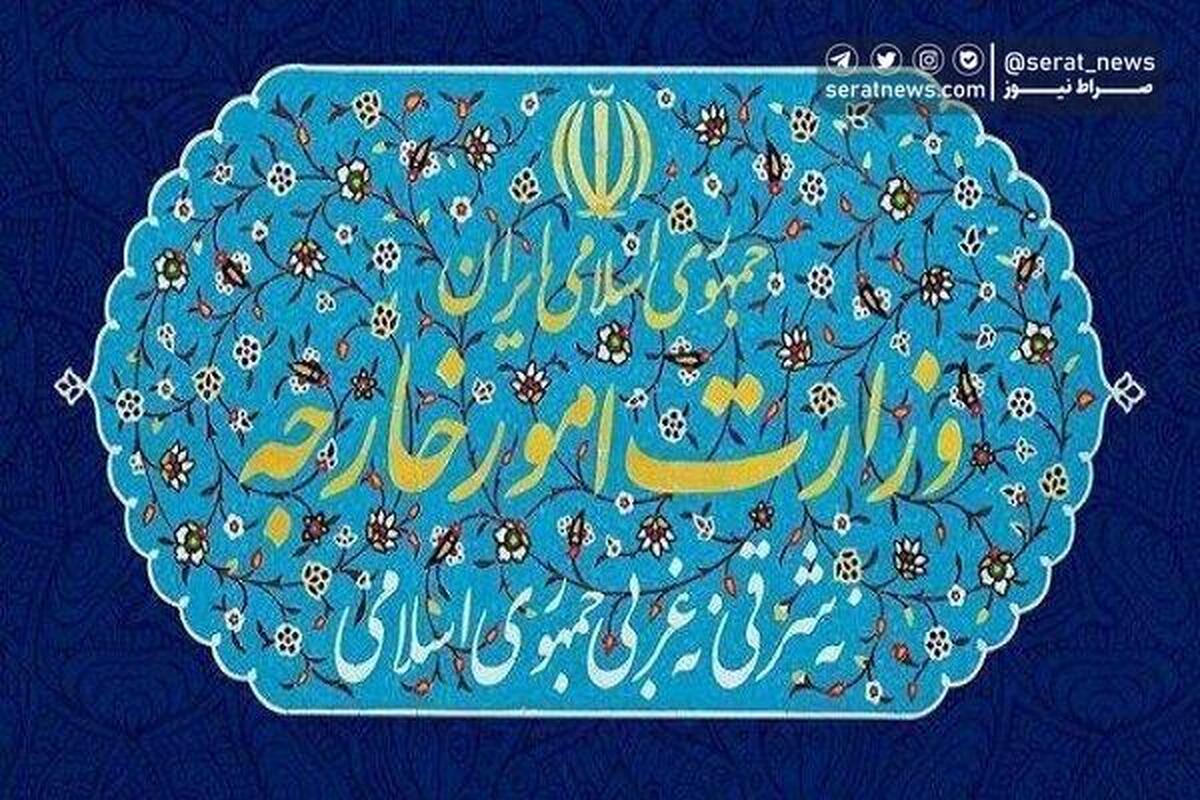 @serat_news
seratnews.com
صراط نیوز
جمهوری اسلامی ایران
وزارت امور خارجه
نه شرقی نه غربی جمهوری اسلامی